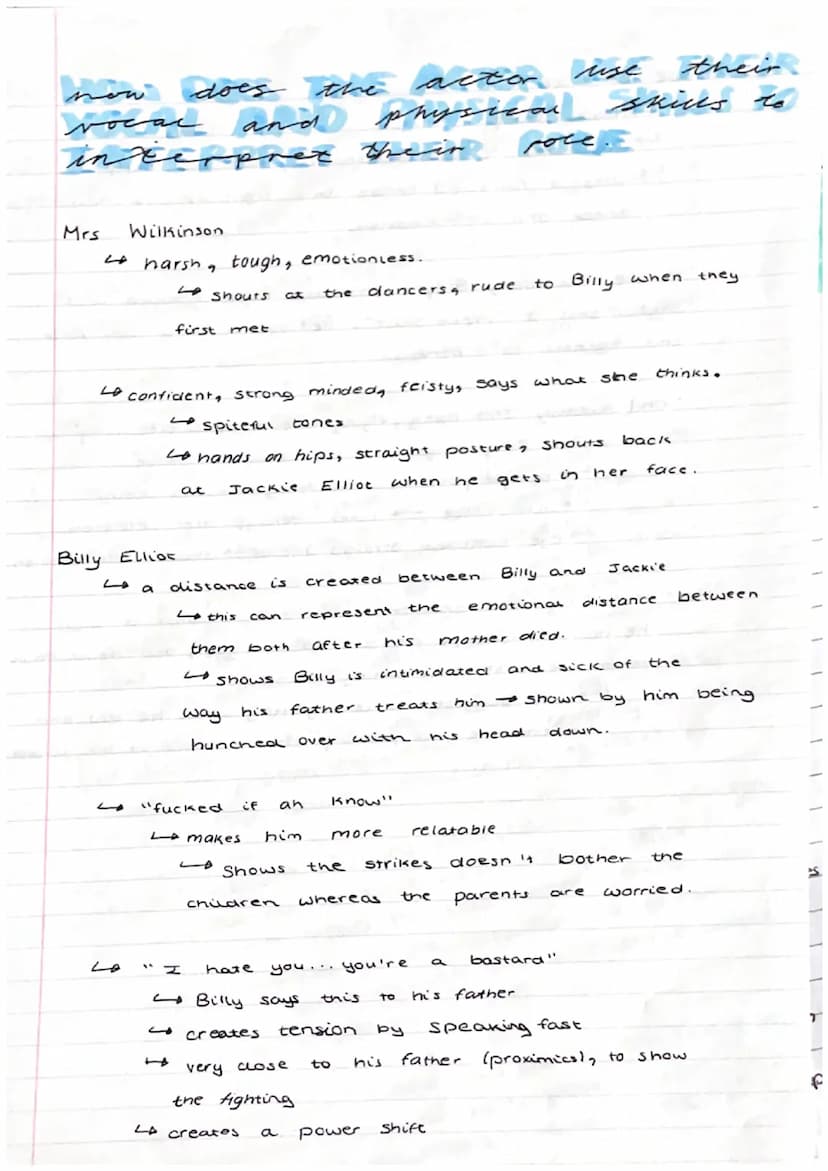 how does the actor use their
vocal and physical skills to
interpret their role.
Mrs Wilkinson
↳ harsh, tough, emotionless.
↳ shouts at the dancers, rude to Billy when they
first met
↳ confident, strong minded, feisty, says what she thinks.
↳ spiteful tones
↳ hands on hips, straight posture, shouts back
at Jackie Elliot when he gets in her face.
Billy Elliot
↳ a distance is created between Billy and Jackie
↳ this can represent the emotional distance between
them both after his mother died.
↳ shows Billy is intimidated and sick of the
way his father treats him → shown by him being
hunched over with his head down.
↳ "fucked if ah know"
↳ makes him more relatable
↳ Shows the strikes doesn't bother the
children whereas the parents are worried.
↳ "I hate you... you're a bastard"
↳ Billy says this to his father
↳ creates tension by speaking fast
↳ very close to his father (proxemics), to show
the fighting
↳ creates a power shift